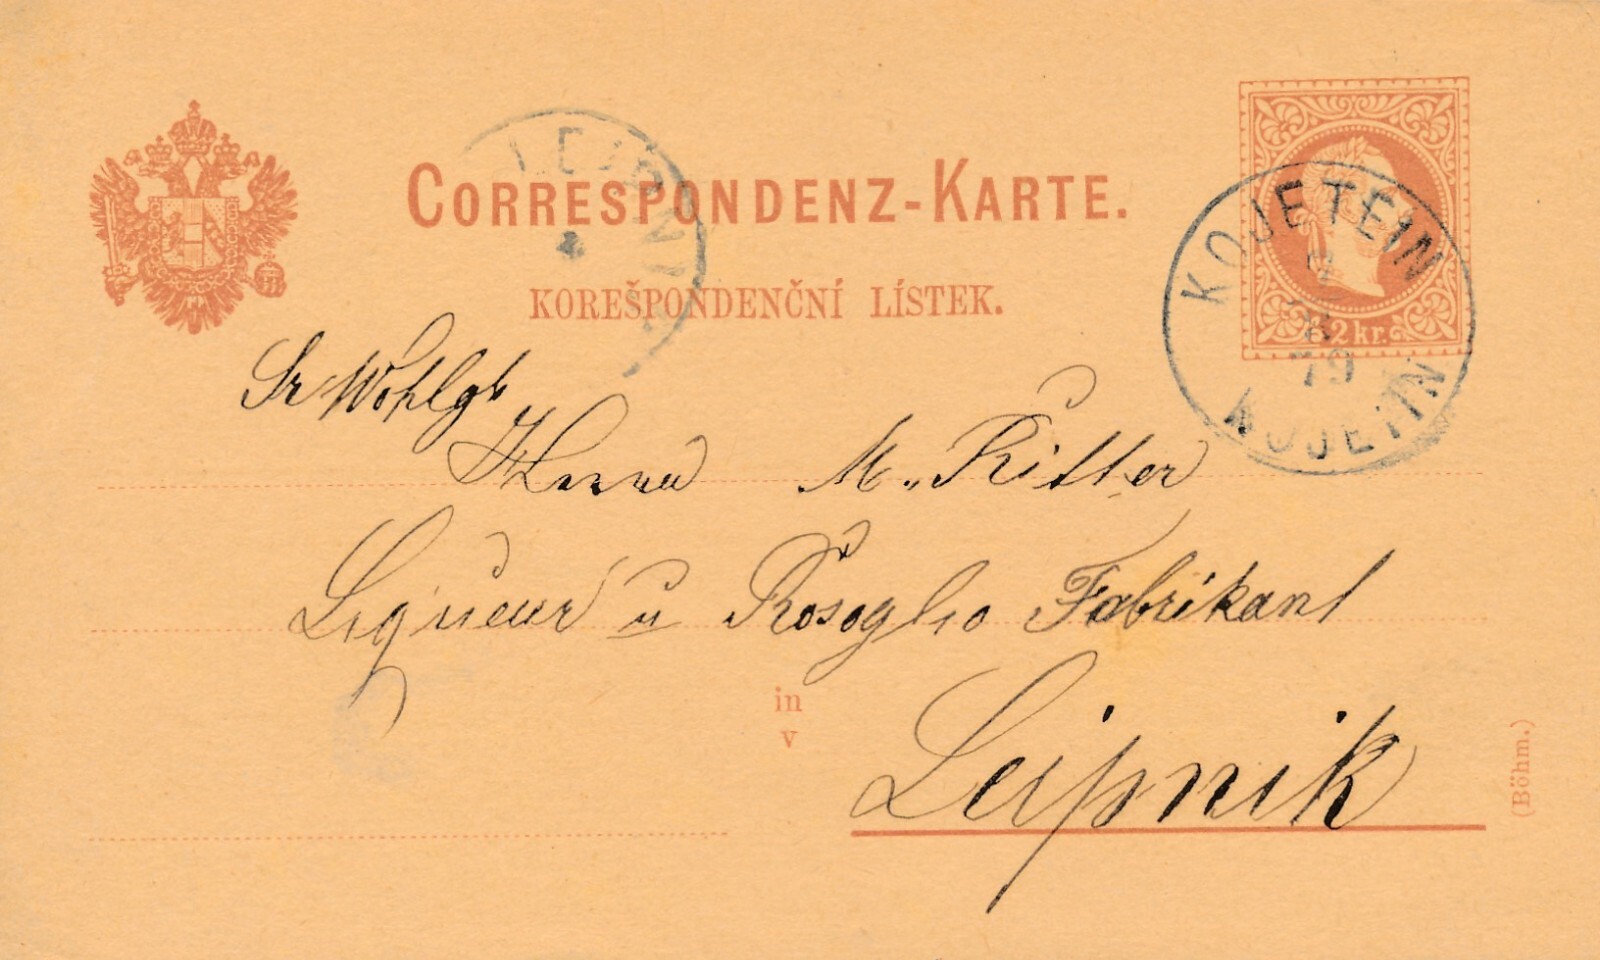 CORRESPONDENZ-KARTE.
KOREŠPONDENČNÍ LÍSTEK.
LEIPNIK
2 kr.
KOJETEIN
79
KOJETÍN
Sr Wohlgb
Herrn M. Ritter
Liqueur u Rosoglio Fabrikant
in
v
Leipnik
(Böhm.)